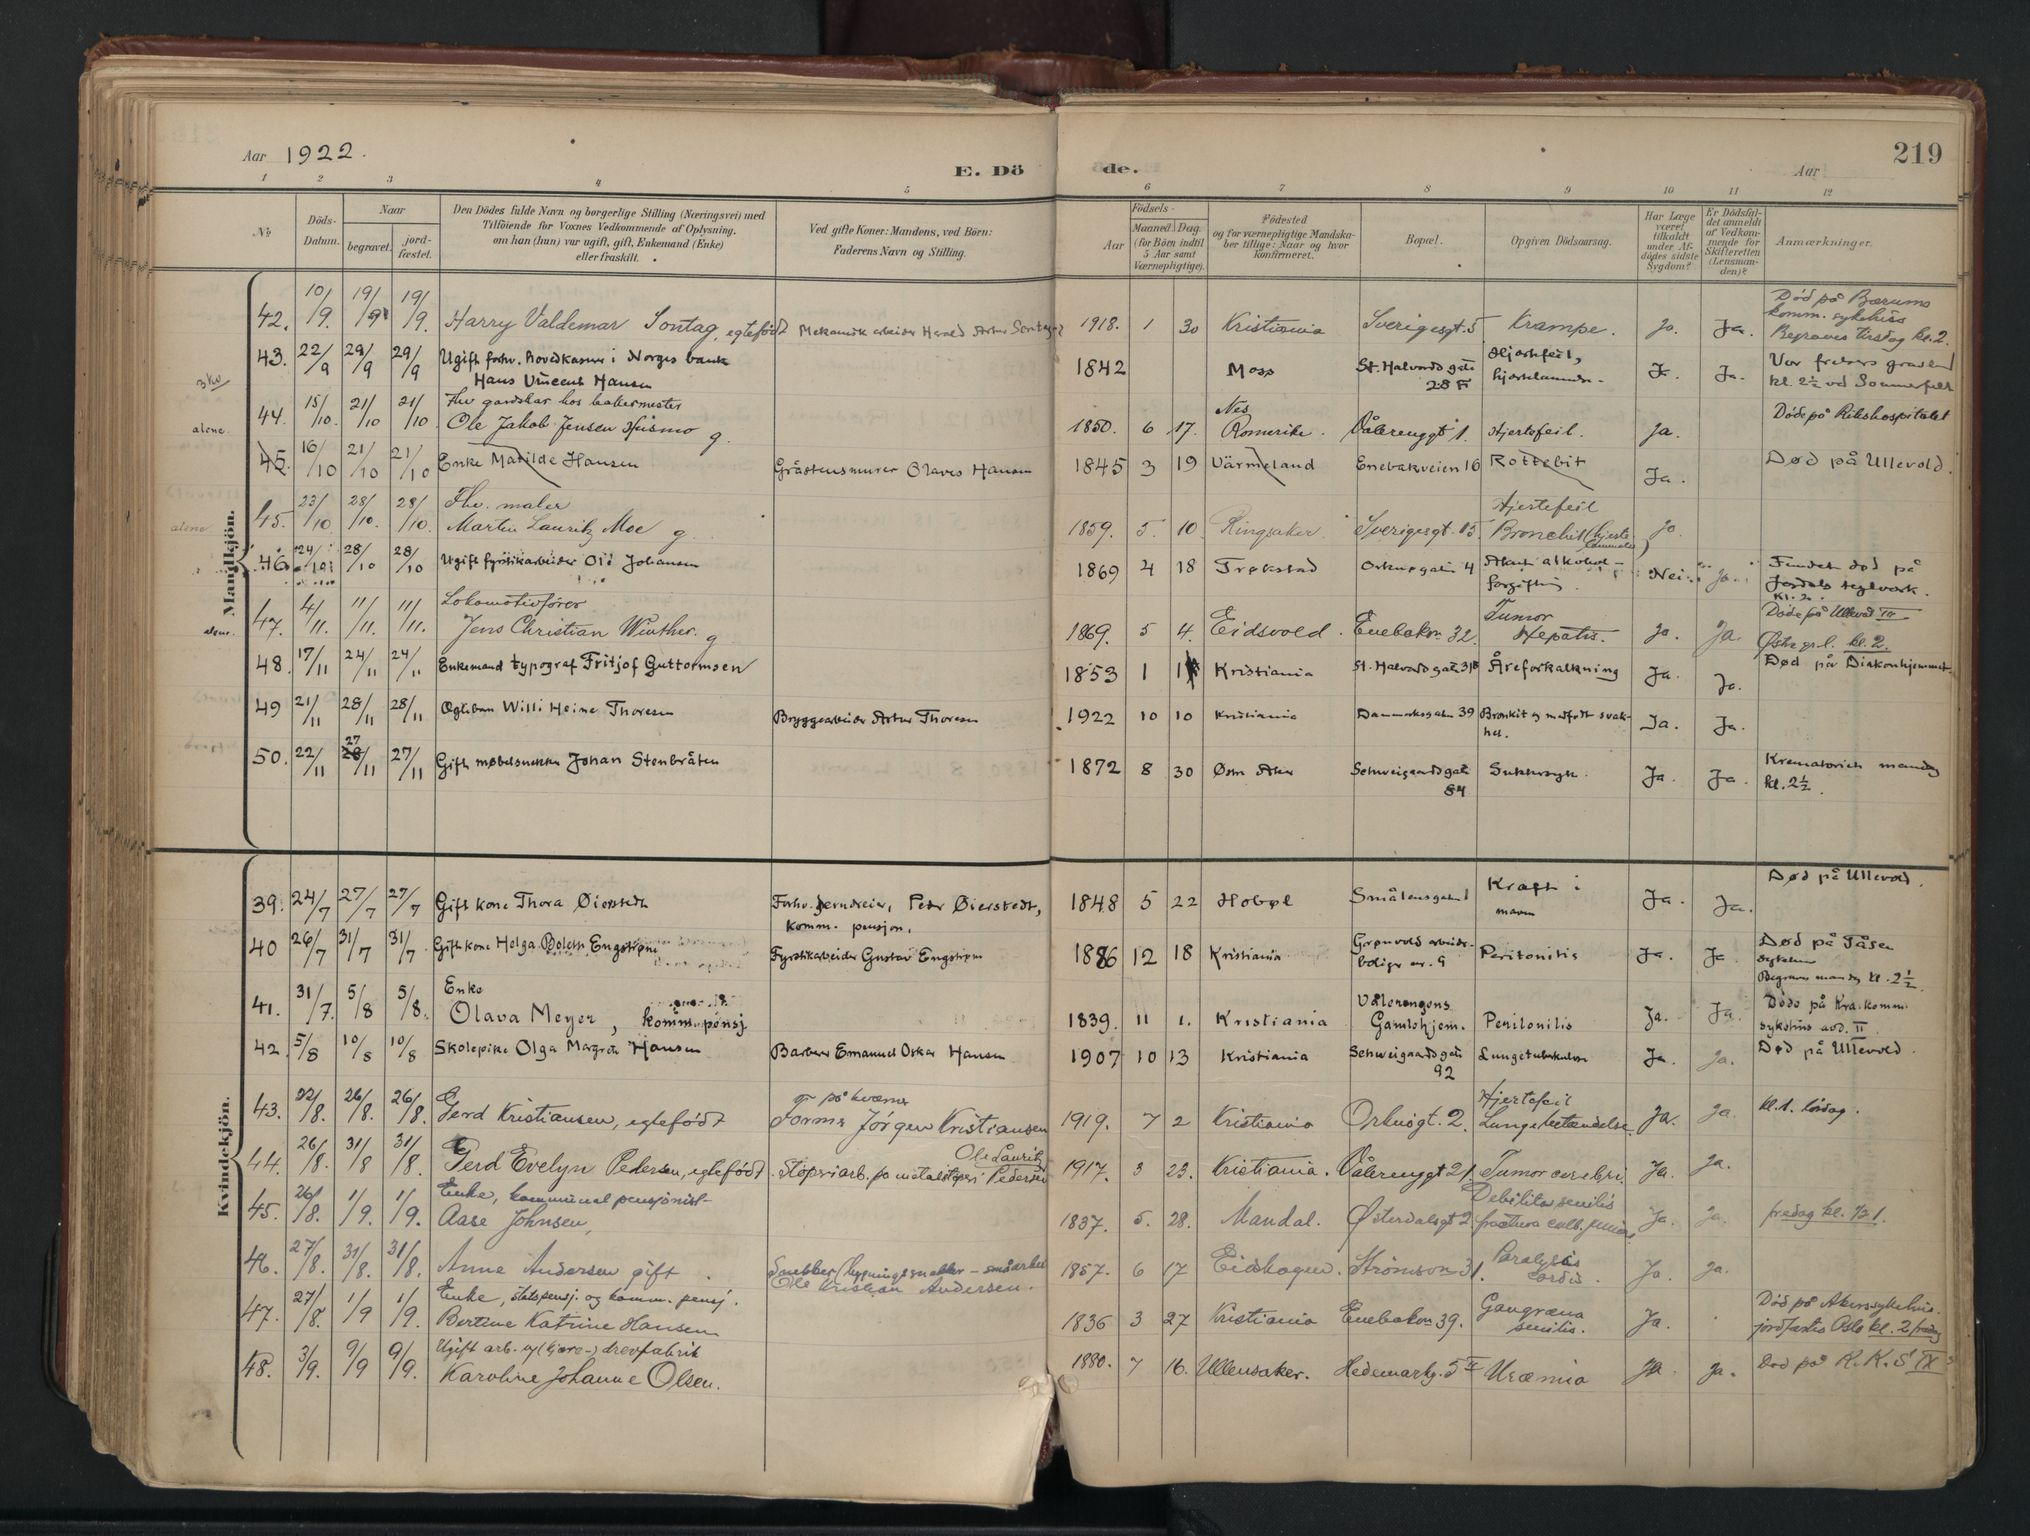 Aar 1922.
E. Dö
de.
Aar
219
1 2 3 4 5 6 7 8 9 10 11 12
No
Döds-Datum.
Naar
begravet.
jord-fæstet.
Den Dödes fulde Navn og borgerlige Stilling (Næringsvei) med
Tilföiende for Voxnes Vedkommende af Oplysning,
om han (hun) var ugift, gift, Enkemand (Enke)
eller fraskilt.
Ved gifte Koner: Mandens, ved Börn:
Faderens Navn og Stilling.
Födsels-
Aar
Maaned Dag
(for Börn indtil
5 Aar samt
Værnepligtige).
Födested
og for værnepligtige Mandska-
ber tillige: Naar og hvor
konfirmeret.
Bopæl.
Opgiven Dödsaarsag.
Har Læge
været
tilkaldt
under Af-
dödes sidste
Sygdom?
Er Dödsfal-
det anmeldt
af Vedkom-
mende for
Skifteretten
(Lensman-
den)?
Anmærkninger.
Mandkjön.
42. 10/9. 19/9 19/9. Harry Valdemar Sontag, egtefödt 1918. 1 30 Kristiania Sverigesgt. 5 Krampe. Jo. Ja. Död på Bærums
komm. sykehus
Begraves tirsdag kl. 2.
43. 22/9 29/9 29/9 Ugift forhv. hovedkasser i Norges bank
Hans Vincent Hansen 1842 Moss St. Halvards gate
28 F Hjertefeil, Ja. Ja. Vor frelsers gravlund
kl. 2½ ved Sommerfelt
alene.
44. 15/10. 21/10 21/10 Fhv gardskar hos bakermester
Ole Jakob Jensen g. 1850. 6 17. Nes
Romerike. Vålerenggt 1. Hjertefeil. Ja. Döde på Rikshospitalet
45. 16/10 21/10 21/10 Enke Matilde Hansen Gråstensmurer Olaves Hansen 1845 3 19 Värmeland Enebakveien 16 Ja. Død på Ullevold.
alene.
45. 23/10 28/10. 28/10. Fhv. maler
Martin Lauritz Moe g. 1859. 5. 10 Ringsaker Sverigesgt. 15 Hjertefeil
Bronchit Jo
46. 24/10 28/10 28/10 Ugift fyrstikarbeider Ole Johansen 1869 4 18 Trøkstad 4 Akut alkohol-
forgiftning Nei. Ja. Fundet død på
Jordals teglverk.
Kl. 2.
alene.
47. 4/11. 11/11. 11/11. Lokomotivfører
Jens Christian Winther. g 1869. 5 4. Eidsvold. Enebakv. 32. Tumor
Hepatis. Jo. Ja. Döde på Ullevål
Østre grl. kl. 2.
48. 17/11 24/11 24/11 Enkemand typograf Fritjof Guttormsen 1853 1 Kristiania St. Halvards gate 31 B Åreforkalkning Ja. Ja. Død på Diakonhjemmet
49 21/11 28/11 28/11 Egteban Willi Heine Thoresen Bryggearbeider Artur Thoresen 1922 10 10 Kristiania Danmarksgaten 39 Bronkit og medfødt svak-
het. Ja. Ja.
50. 22/11 27/11 27/11 Gift møbelsnekker Johan Stenbråten 1872 8 30 Østre Aker Schweigaards gate
84 Sukkersyke. Ja. Ja. Krematoriet mandag
kl. 2½.
Kvindekjön.
39. 24/7 27/7 27/7 Gift kone Thora Øierstedt Forhv. Peter Øierstedt,
komm. pensjon. 1848 5 22 Hobøl Smålensgaten 1 Kræft i
maven Ja. Ja. Død på Ullevold.
40 26/7 31/7 31/7. Gift kone Helga Boletta Engstrøm Fyrstikarbeider Gustav Engstrøm 1886 12 18 Kristiania Grønvold arbeider-
boliger nr. 9 Peritonitis Ja. Ja Død på Tåsen
sykehus
Begraves mandag kl. 2½.
41. 31/7. 5/8 5/8. Enke
Olava Meyer, komm. pensj 1839. 11 1. Kristiania Vålerengens
Gamlehjem. Peritonitis Ja. Ja. Döde på Kra. komm.
sykehus avd. II
42. 5/8 10/8 10/8 Skolepike Olga Margrete Hansen Barberer Emanuel Oskar Hansen 1907 10 13 Kristiania Schweigaards gate
92 Lungetuberkulose Ja. Ja. Død på Ullevold.
43. 22/8. 26/8. 26/8. Gerd Kristiansen, egtefödt Former Jörgen Kristiansen 1919. 7 2 Kristiania Orknøgt. 2. Hjertefeil
Lungebetændelse. Ja. Ja. kl. 1. lördag.
44. 26/8. 31/8 31/8. Gerd Evelyn Pedersen, egtefödt. Ole Lauritz
Støperiarb. på metalstøperi Pedersen 1917. 3 23. Kristiania. Vålerenggt 21 Tumor cerebri. Ja. Ja.
45. 26/8. 1/9. 1/9. Enke, kommunal pensjonist
Aase Johnsen, 1837. 5. 28. Mandal. Østerdalsgt 2. Debilitas senilis
fractura colli femoris Ja. Ja. fredag kl. ½ 1.
46. 27/8. 31/8. 31/8. Anne Andersen gift. Snekker
Ole Kristian Andersen. 1857. 6 17 Eidskogen. Strömsv 31. Paralysis
cordis. Ja. Ja.
47. 27/8. 1/9 1/9 Enke, statspensj. og komm. pensj.
Bertine Katrine Hansen 1836 3 27 Kristiania Enebakv 39. Gangræna
senilis. Ja. Död på Akers sykehus.
jordfæstes Oslo kl. 2 fredag
48. 3/9. 9/9 9/9. Ugift arb.
Karoline Johanne Olsen. 1880. 7 16. Ullensaker. Hedemarkg. 5 II Uræmia Ja. Ja. Död på K. K. S IX